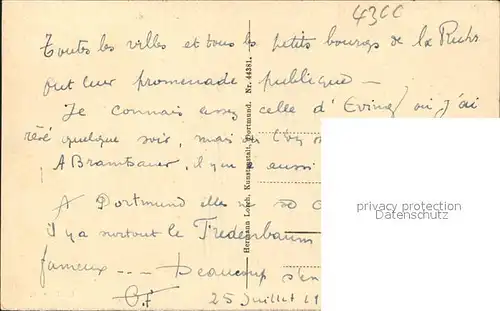 43CC
Toutes les villes et tous les petits bourgs de la Ruhr
ont leur promenade publique —
Je connais assez celle d'Eving où j'ai
rêvé quelque soir, mais
A Brambauer, il y a aussi
A Dortmund elles
il y a surtout le Fredenbaum
fameux --- Beaucoup s'en
25 Juillet
Hermann Lorch, Kunstanstalt, Dortmund. Nr. 44381.
privacy protection
Datenschutz